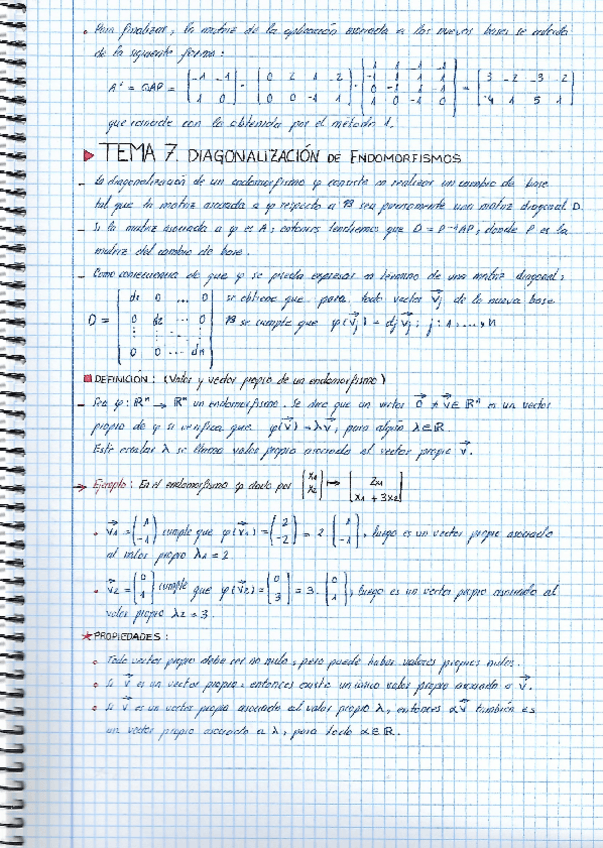 • Para finalizar, la matriz de la aplicación asociada a las nuevas bases se calcula
de la siguiente forma:
A' = QAP = [-1 -1; 1 0] · [0 2 1 -2; 0 0 -1 1] · [1 1 -1 -1; -1 1 1 1; 0 -1 1 1; 1 0 -1 0] = [3 -2 -3 2; 4 1 5 1]
que coincide con la obtenida por el método 1.
▶ TEMA 7. DIAGONALIZACIÓN DE ENDOMORFISMOS
- La diagonalización de un endomorfismo φ consiste en realizar un cambio de base
tal que la matriz asociada a φ respecto a B sea puramente una matriz diagonal D.
- Si la matriz asociada a φ es A; entonces tendremos que D = P⁻¹AP, donde P es la
matriz del cambio de base.
- Como consecuencia de que φ se pueda expresar en término de una matriz diagonal:
D = [d₁ 0 ... 0; 0 d₂ ... 0; ⋮ ⋮ ⋱ ⋮; 0 0 ... dₙ] se obtiene que para todo vector v⃗ⱼ de la nueva base
B se cumple que φ(v⃗ⱼ) = dⱼv⃗ⱼ; j: 1, ..., n
■ DEFINICIÓN: (Valor y vector propio de un endomorfismo)
- Sea φ: ℝⁿ → ℝⁿ un endomorfismo. Se dice que un vector 0⃗ ≠ v⃗ ∈ ℝⁿ es un vector
propio de φ si verifica que φ(v⃗) = λv⃗, para algún λ∈ℝ.
Este escalar λ se llama valor propio asociado al vector propio v⃗.
→ Ejemplo: En el endomorfismo φ dado por [x₁; x₂] ↦ [2x₁; x₁ + 3x₂]
• v⃗₁ = (1; -1) cumple que φ(v⃗₁) = (2; -2) = 2 · (1; -1), luego es un vector propio asociado
al valor propio λ₁ = 2
• v⃗₂ = (0; 1) cumple que φ(v⃗₂) = (0; 3) = 3 · (0; 1), luego es un vector propio asociado al
valor propio λ₂ = 3.
★ PROPIEDADES:
• Todo vector propio debe ser no nulo, pero puede haber valores propios nulos.
• Si v⃗ es un vector propio, entonces existe un único valor propio asociado a v⃗.
• Si v⃗ es un vector propio asociado al valor propio λ, entonces αv⃗ también es
un vector propio asociado a λ, para todo α∈ℝ.